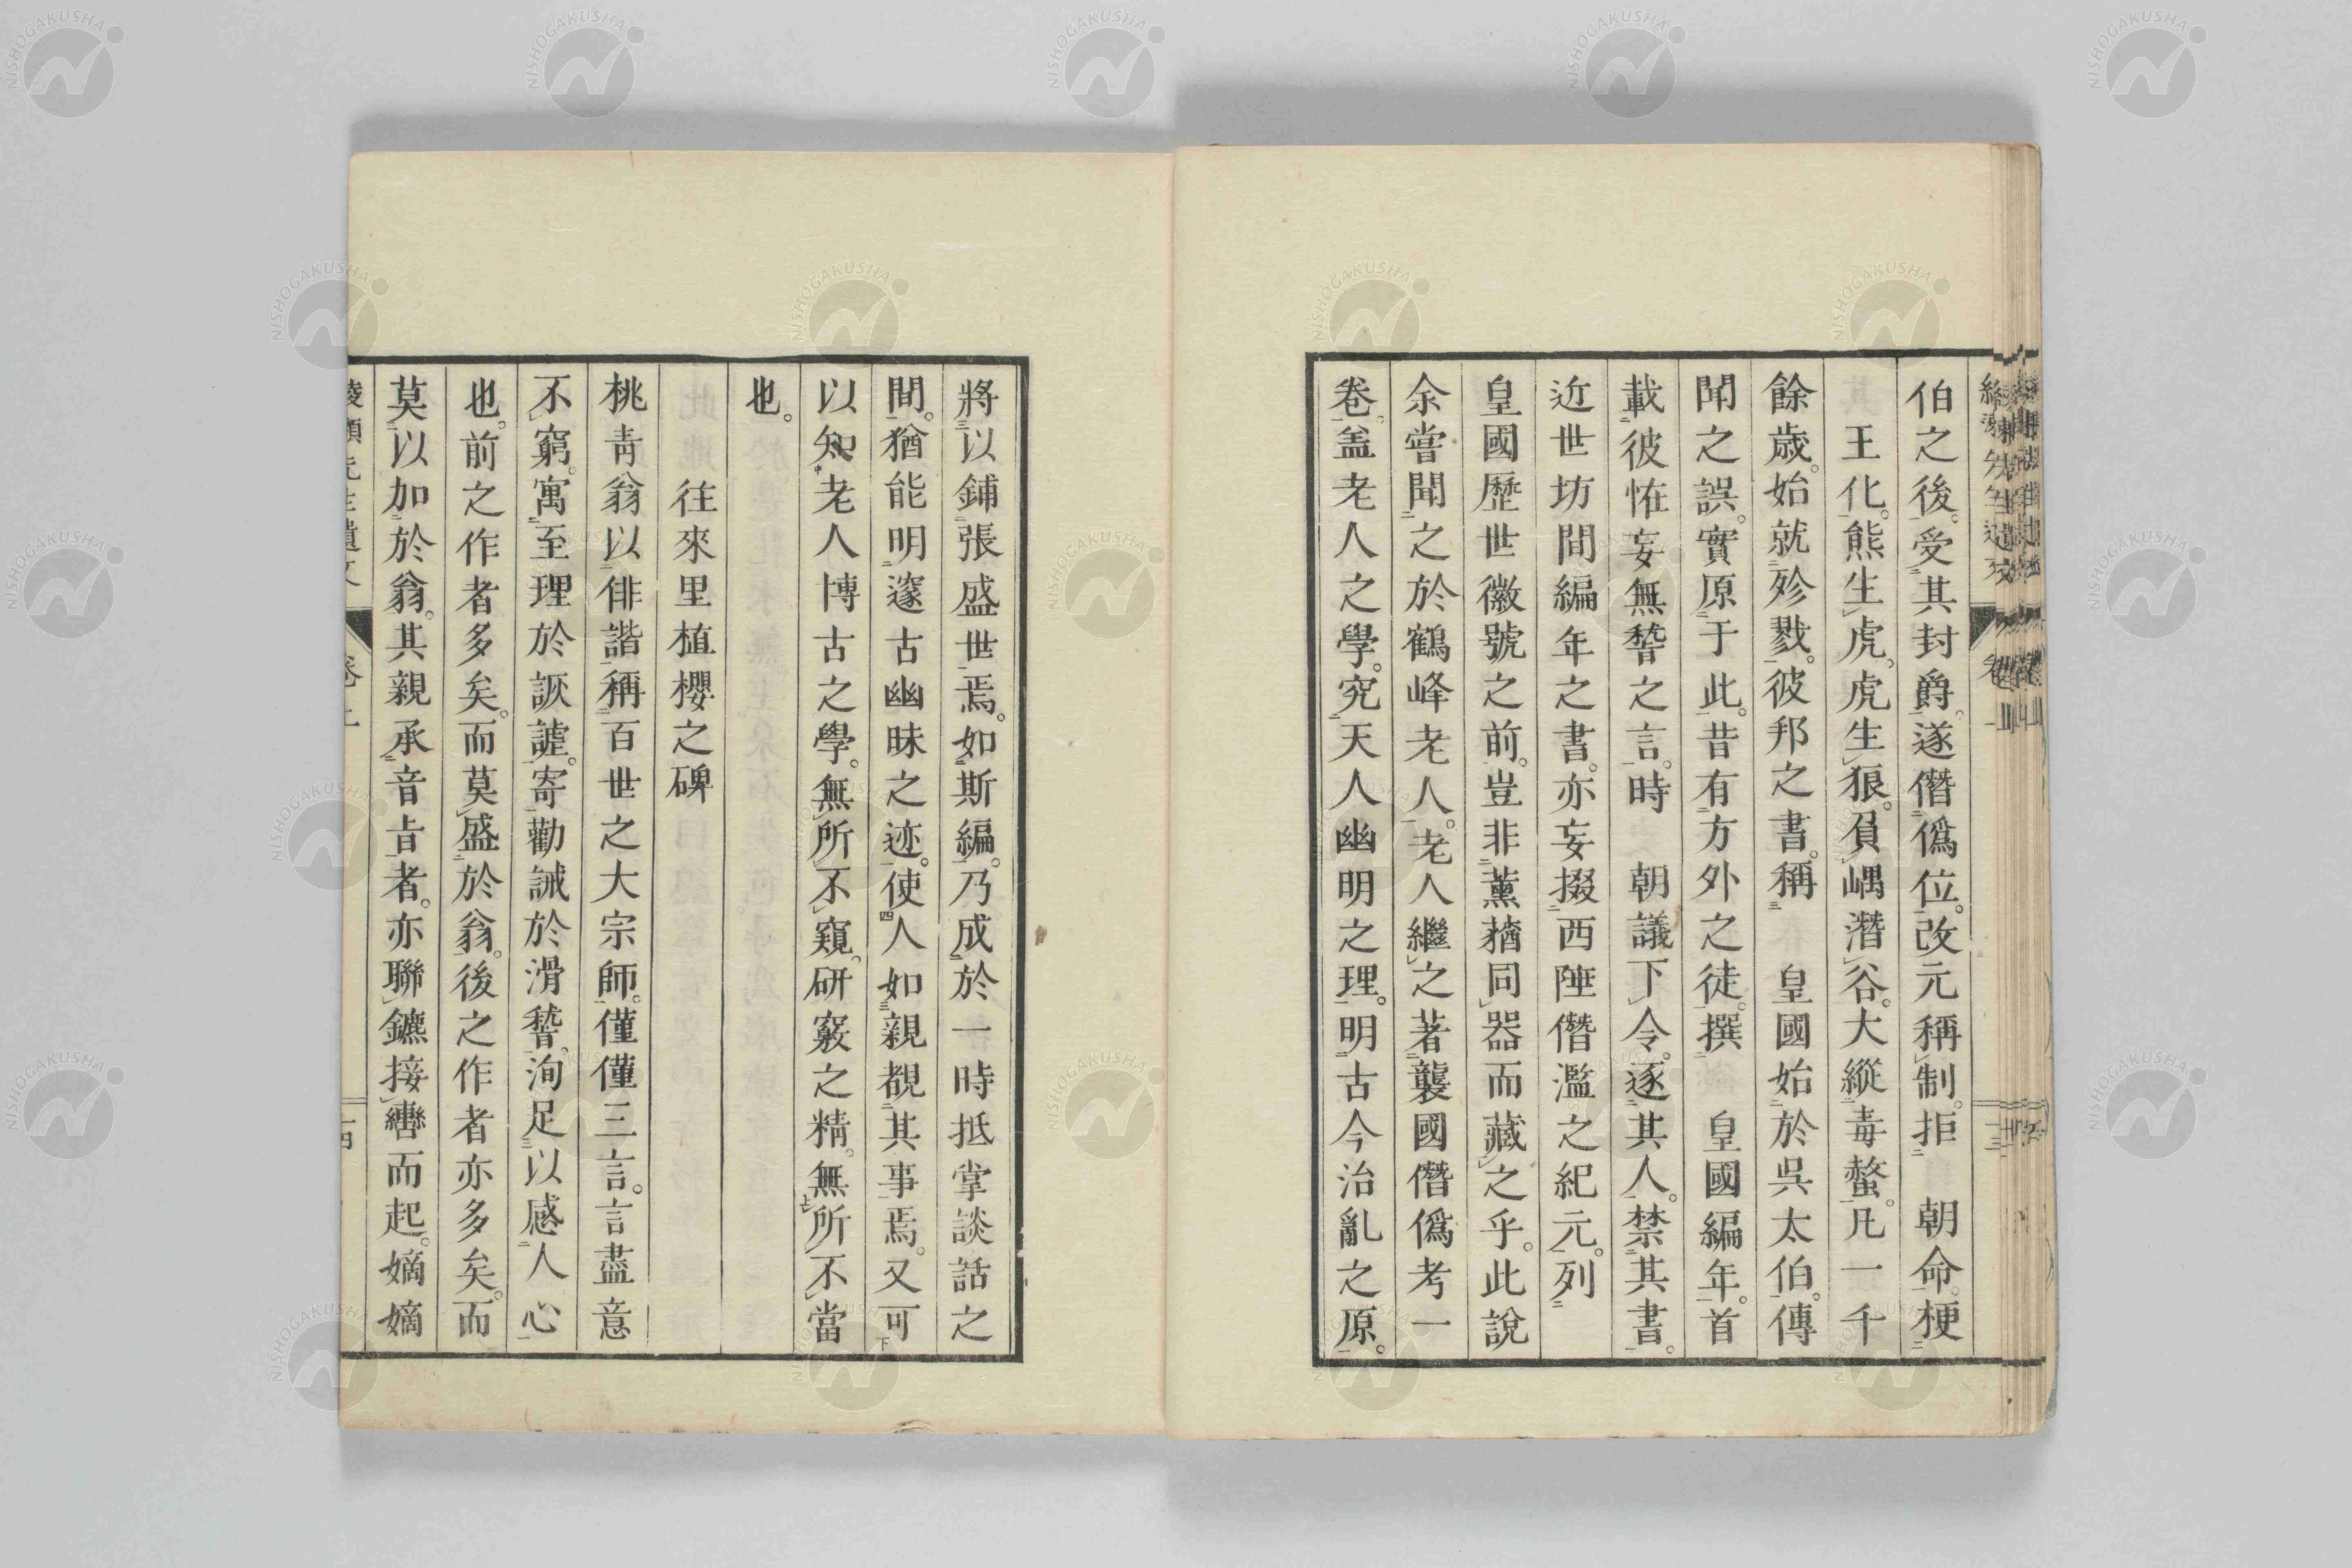 伯之後。受其封爵。遂僭僞位。改元稱制。拒　朝命。梗
王化。熊生虎。虎生狼。負嵎潛谷。大縱毒螫。凡一千
餘歳。始就殄戮。彼邦之書。稱　皇國始於吳太伯。傳
聞之誤。實原于此。昔有方外之徒。撰　皇國編年。首
載彼恠妄無稽之言。時　朝議下令。逐其人。禁其書。
近世坊間編年之書。亦妄掇西陲僭濫之紀元。列
皇國歷世徽號之前。豈非薰蕕同器而藏之乎。此說
余嘗聞之於鶴峰老人。老人繼之著襲國僭僞考一
卷。盖老人之學。究天人幽明之理。明古今治亂之原。
將以鋪張盛世焉。如斯編。乃成於一時抵掌談話之
間。猶能明邃古幽昧之迹。使人如親覩其事焉。又可
以知老人博古之學。無所不窺。研竅之精。無所不當
也。
往來里植櫻之碑
桃靑翁以俳諧稱百世之大宗師。僅僅三言。言盡意
不窮。寓至理於詼謔。寄勸誡於滑稽。洵足以感人心
也。前之作者多矣。而莫盛於翁。後之作者亦多矣。而
莫以加於翁。其親承音旨者。亦聯鑣接轡而起。嫡嫡
先生遺文 卷上